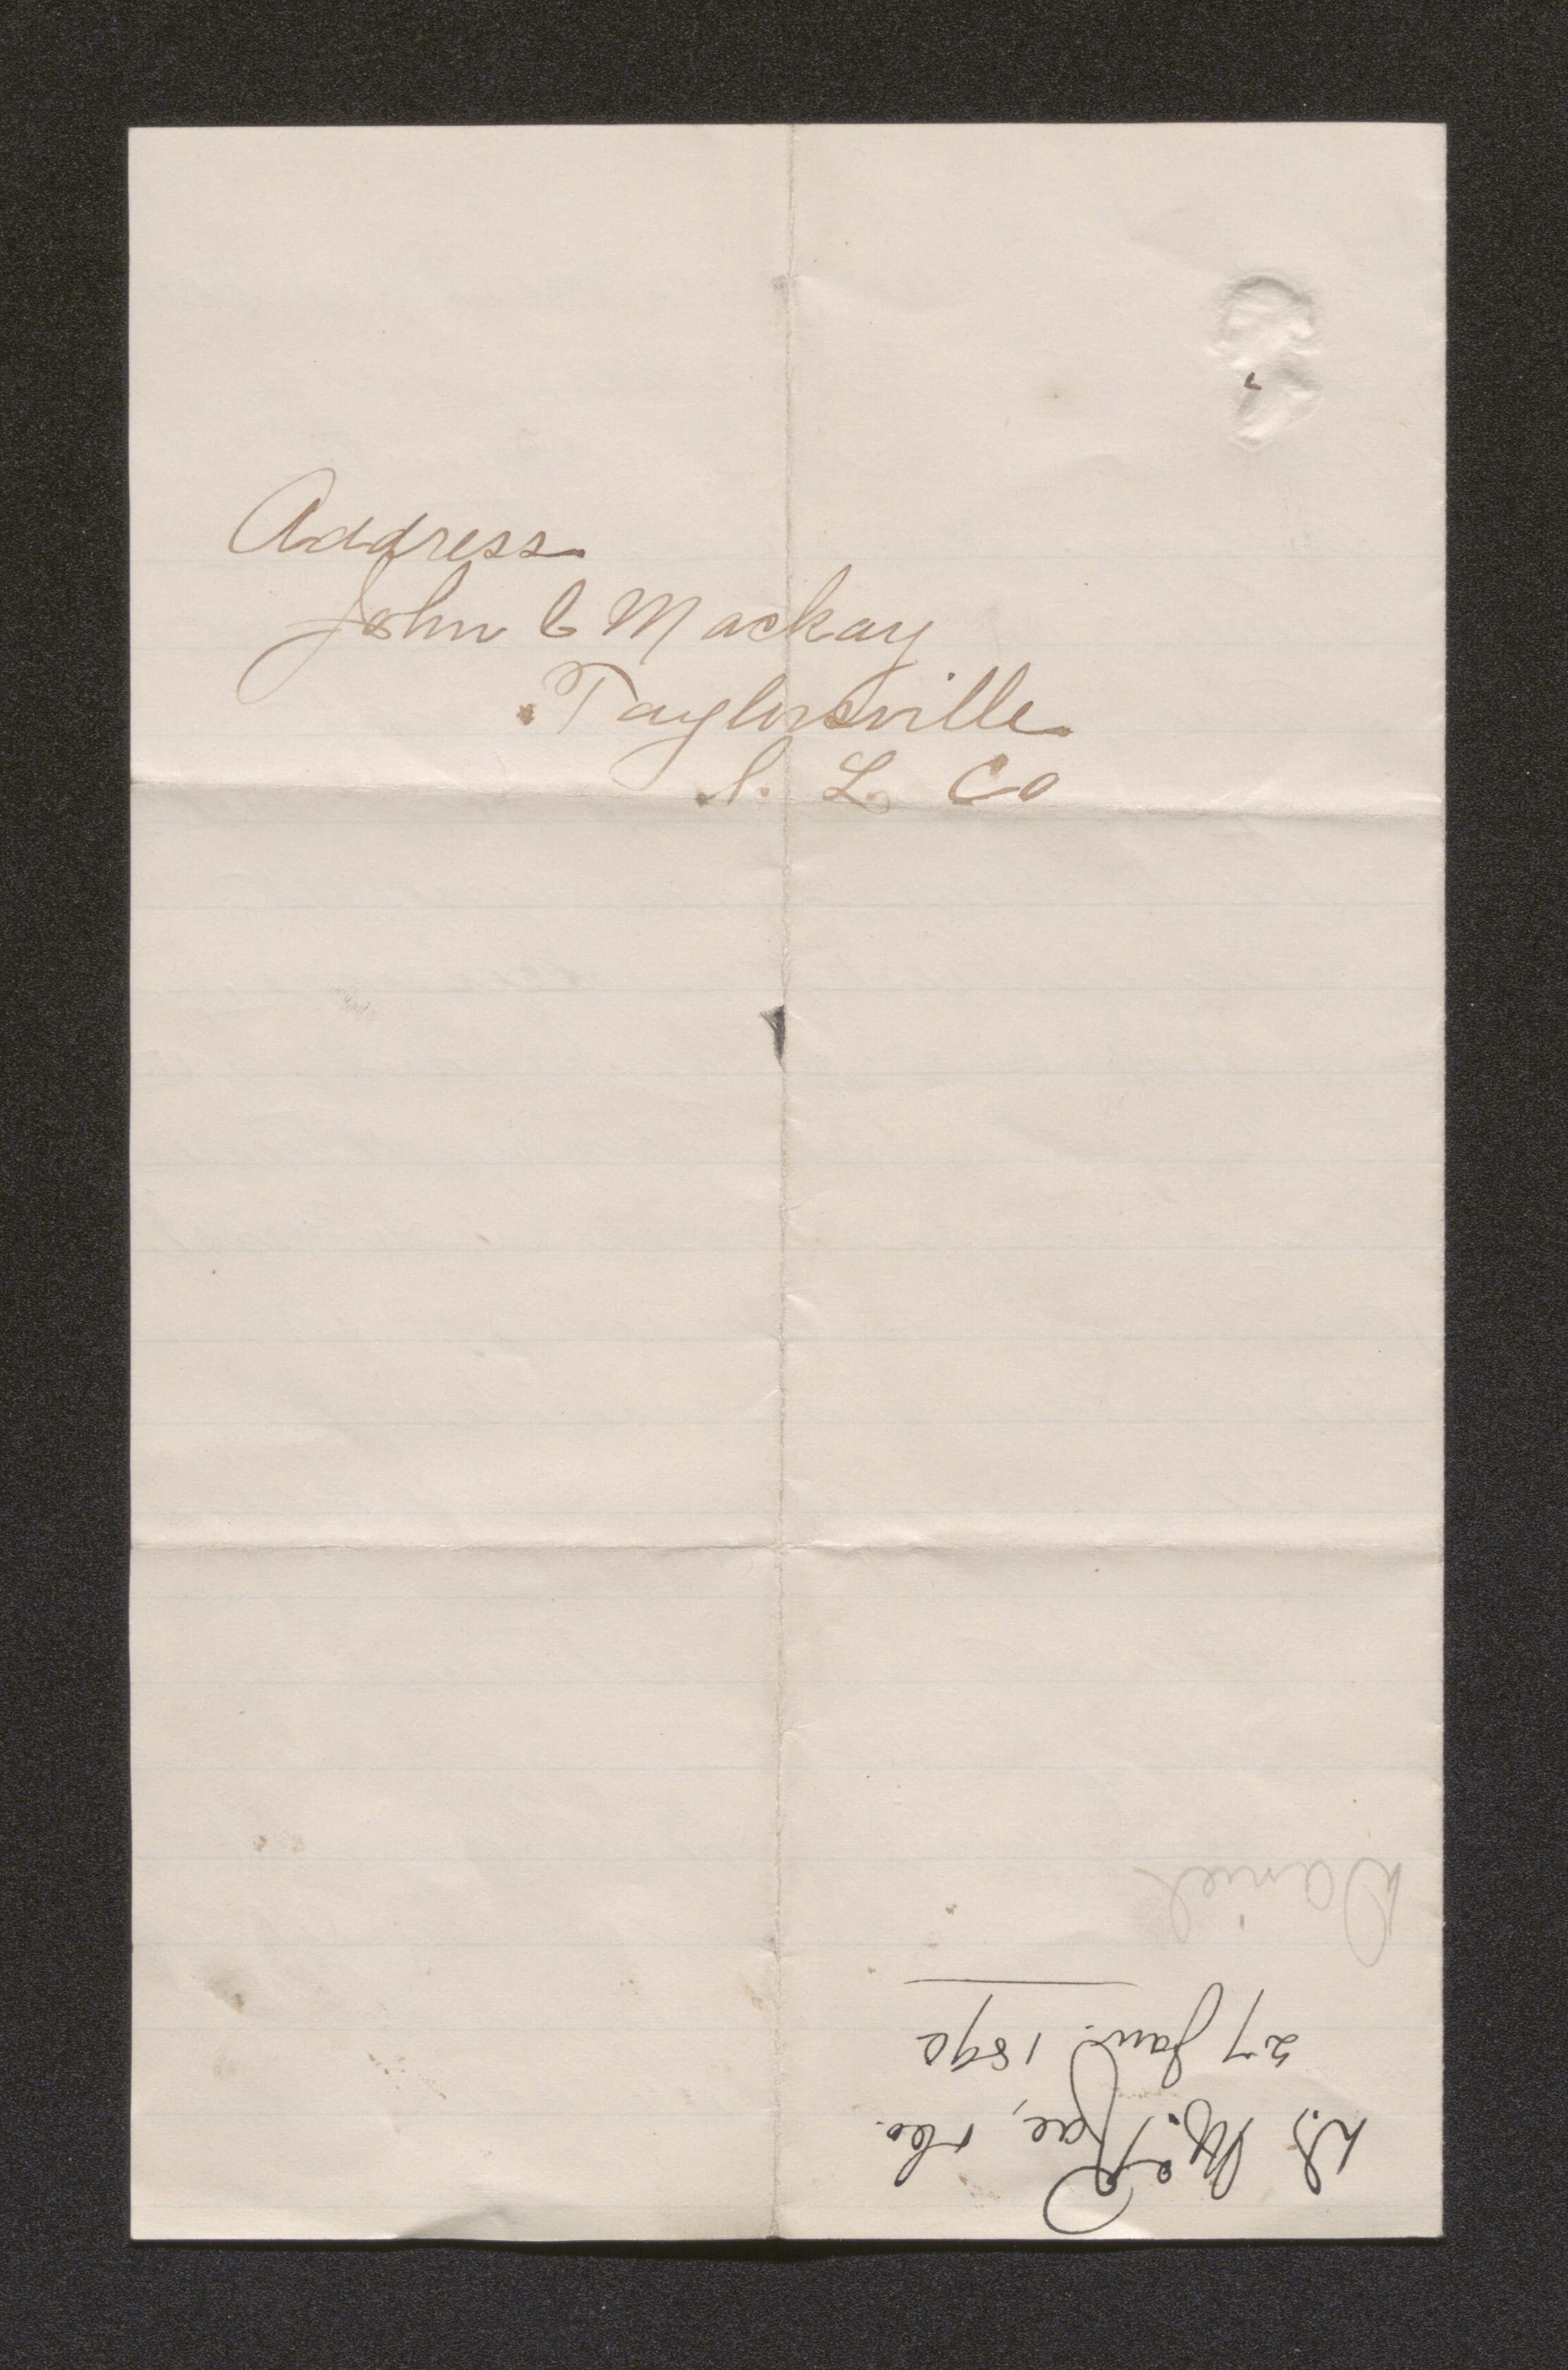 Address
John C Mackay
Taylorsville
S. L. Co
D. McRae,
27 Jan. 1890
Daniel